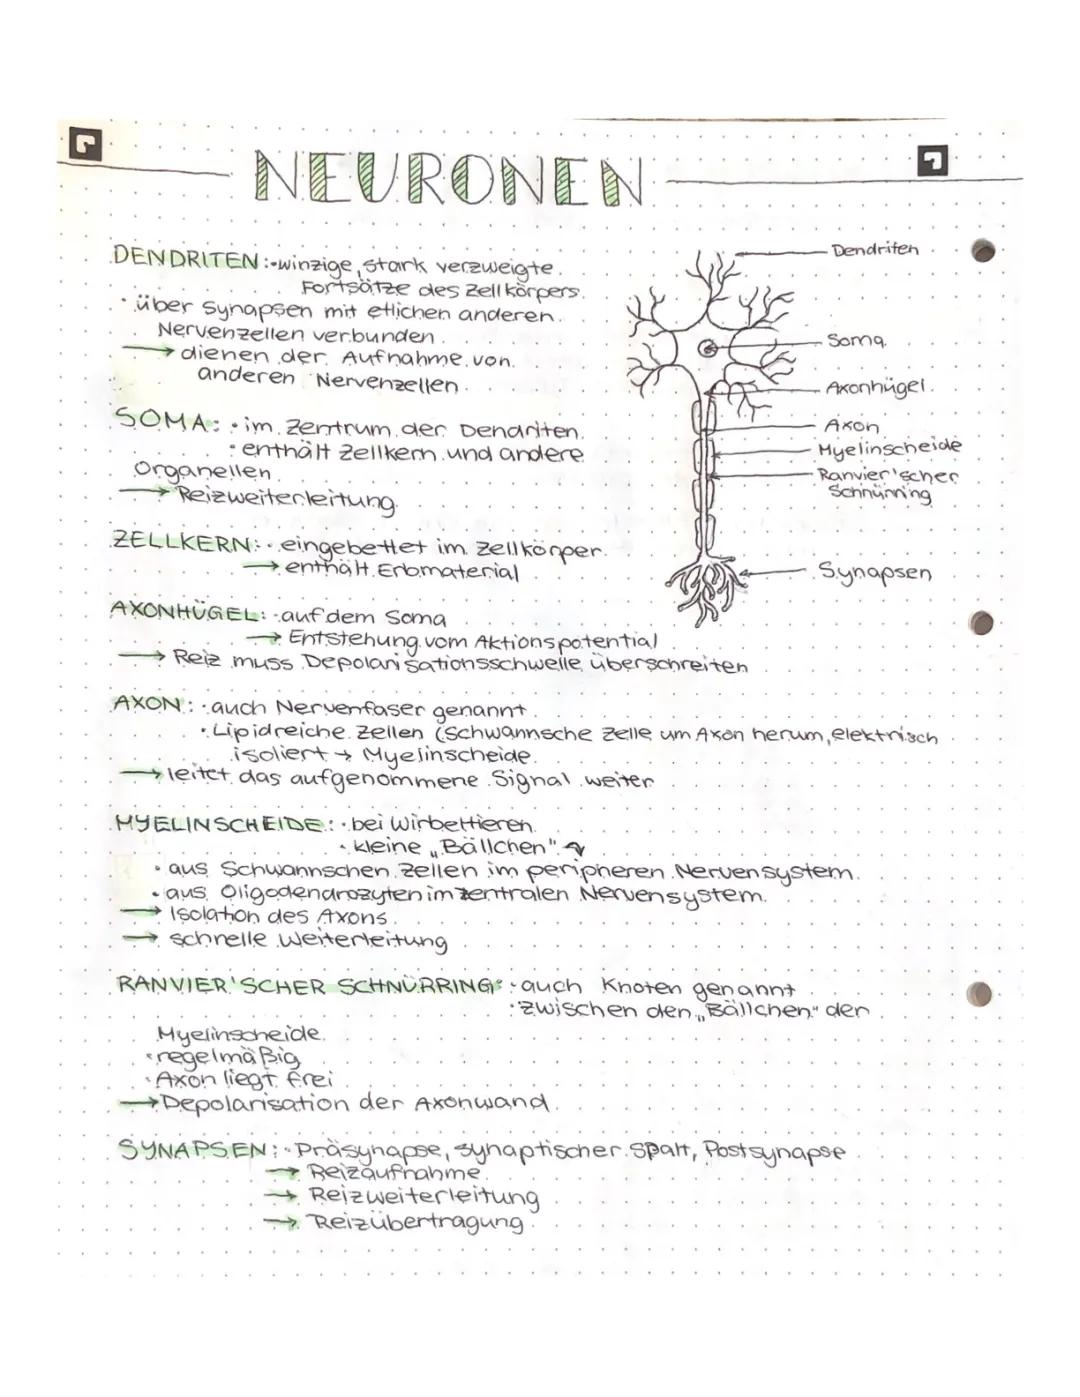 NEURONEN
DENDRITEN: • winzige, stark verzweigte
Fortsätze des Zellkörpers
• über Synapsen mit etlichen anderen
Nervenzellen verbunden
→ dienen der Aufnahme von
anderen Nervenzellen
SOMA: • im Zentrum der Dendriten
• enthält Zellkern und andere
Organellen
→ Reizweiterleitung
ZELLKERN: • eingebettet im Zellkörper
→ enthält Erbmaterial
AXONHÜGEL: • auf dem Soma
→ Entstehung vom Aktionspotential
→ Reiz muss Depolarisationsschwelle überschreiten
AXON: • auch Nervenfaser genannt
• Lipidreiche Zellen (Schwannsche Zelle um Axon herum, elektrisch
isoliert → Myelinscheide
→ leitet das aufgenommene Signal weiter
MYELINSCHEIDE: • bei Wirbeltieren
• kleine „Bällchen"
• aus Schwannschen Zellen im peripheren Nervensystem
• aus Oligodendrozyten im zentralen Nervensystem
→ Isolation des Axons
→ schnelle Weiterleitung
RANVIER'SCHER SCHNÜRRING: • auch Knoten genannt
• zwischen den „Bällchen" der
Myelinscheide
• regelmäßig
• Axon liegt frei
→ Depolarisation der Axonwand
SYNAPSEN: • Präsynapse, synaptischer Spalt, Postsynapse
→ Reizaufnahme
→ Reizweiterleitung
→ Reizübertragung
Dendriten
Soma
Axonhügel
Axon
Myelinscheide
Ranvier'scher
Schnürring
Synapsen